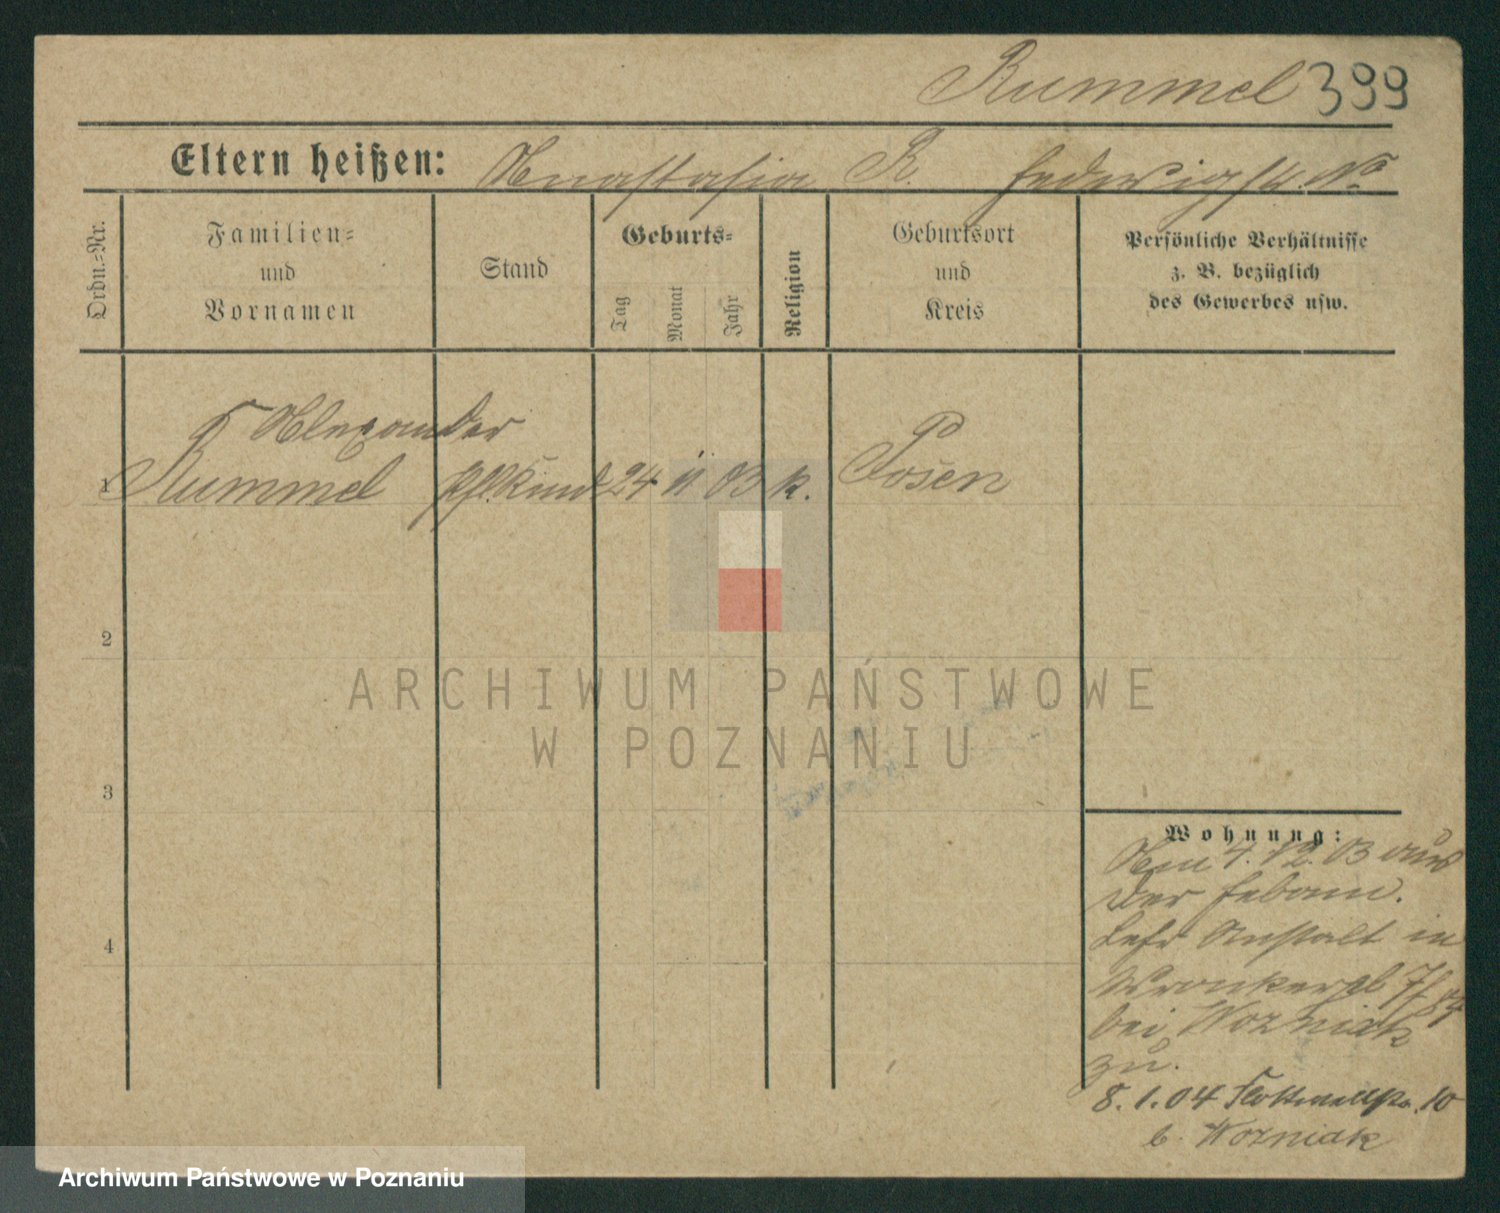 Rummel 399
Eltern heißen: Anastasia R. Hedwigstr. No
Ordn.-Nr.
Familien-
und
Vornamen
Stand
Geburts-
Tag
Monat
Jahr
Religion
Geburtsort
und
Kreis
Persönliche Verhältnisse
z. B. bezüglich
des Gewerbes usw.
Alexander
1 Rummel pflKind 24 11 03 k. Posen
2
3
4
Wohnung:
Am 4.12.03 aus
der Hebam.
Lehr Anstalt in
Wronkerpl 7/
bei Wozniak
zu.
8.1.04 10
b. Wozniak
ARCHIWUM PAŃSTWOWE
W POZNANIU
Archiwum Państwowe w Poznaniu